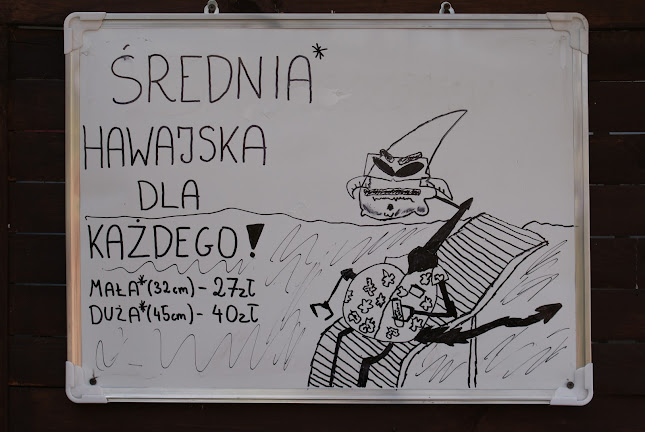 ŚREDNIA*
HAWAJSKA
DLA
KAŻDEGO!
MAŁA*(32cm) - 27zł
DUŻA*(45cm) - 40zł